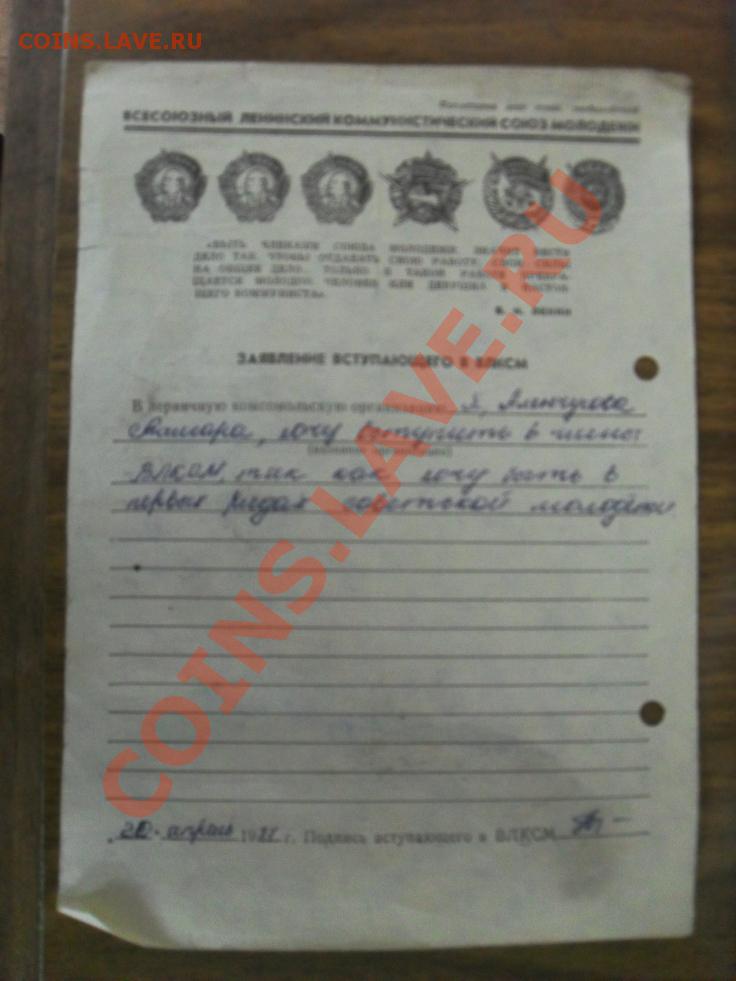 COINS.LAVE.RU
ВСЕСОЮЗНЫЙ ЛЕНИНСКИЙ КОММУНИСТИЧЕСКИЙ СОЮЗ МОЛОДЕЖИ
«БЫТЬ ЧЛЕНАМИ СОЮЗА МОЛОДЕЖИ ЗНАЧИТ ВЕСТИ
ДЕЛО ТАК, ЧТОБЫ ОТДАВАТЬ СВОЮ РАБОТУ, СВОИ СИЛЫ
НА ОБЩЕЕ ДЕЛО. ТОЛЬКО В ТАКОЙ РАБОТЕ ПРЕВРА-
ЩАЕТСЯ МОЛОДОЙ ЧЕЛОВЕК ИЛИ ДЕВУШКА В НАСТОЯ-
ЩЕГО КОММУНИСТА».
В. И. ЛЕНИН
ЗАЯВЛЕНИЕ ВСТУПАЮЩЕГО В ВЛКСМ
В первичную комсомольскую организацию Я,
хочу вступить в члены
ВЛКСМ, так как хочу быть в
первых рядах советской молодёжи.
20 апрель 19 г. Подпись вступающего в ВЛКСМ
COINS.LAVE.RU